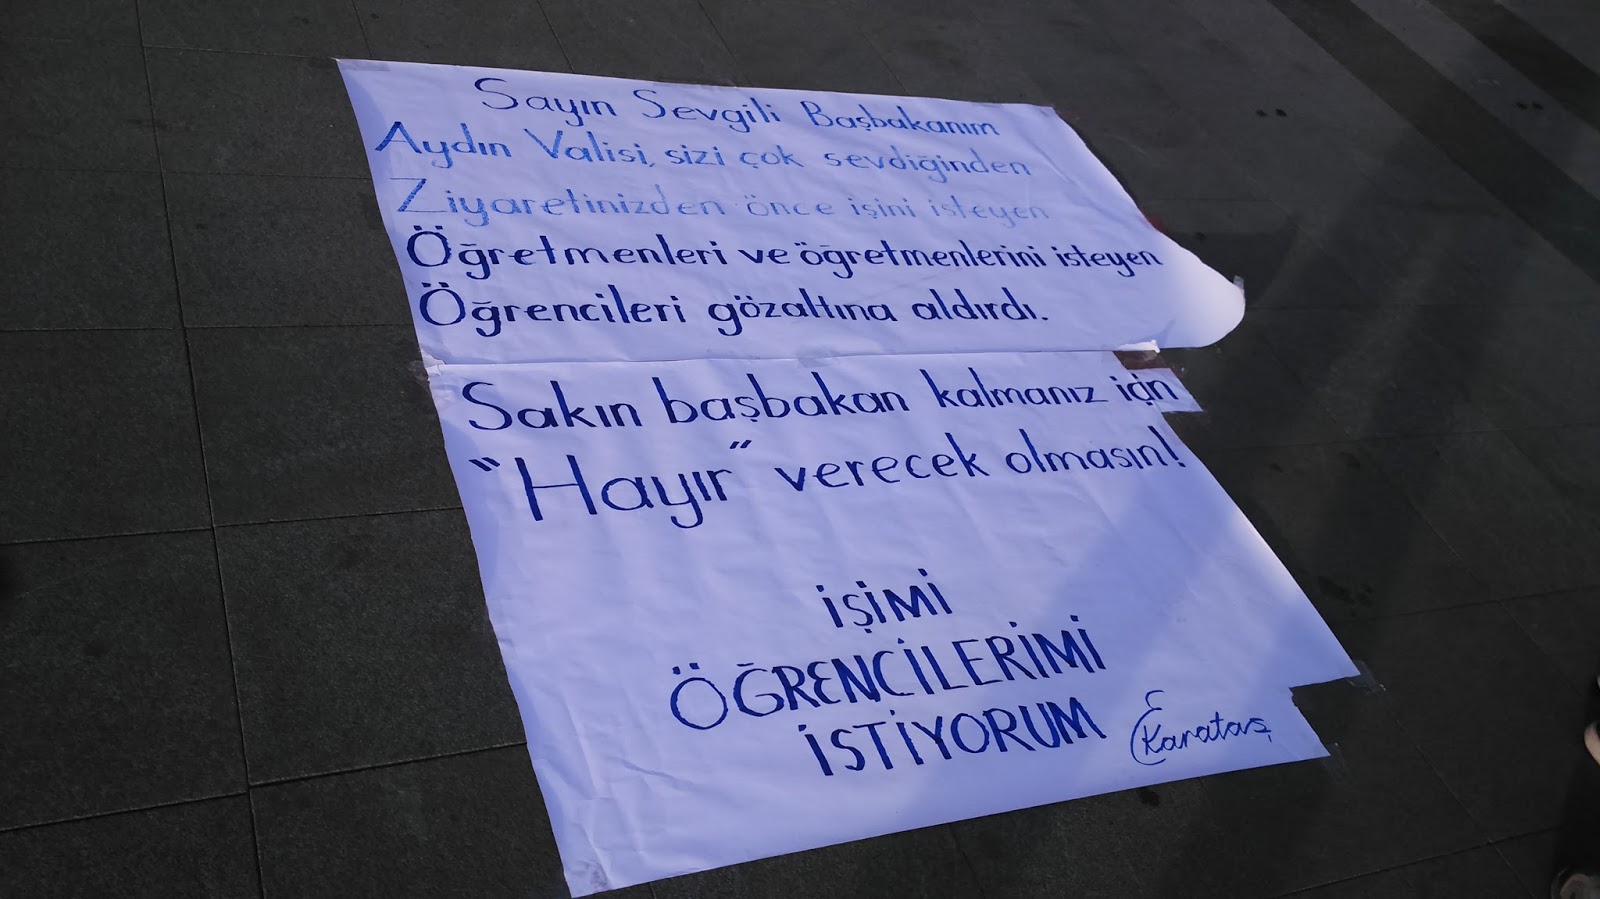 Sayın Sevgili Başbakanım
Aydın Valisi, sizi çok sevdiğinden
Ziyaretinizden önce işini isteyen
Öğretmenleri ve öğretmenlerini isteyen
Öğrencileri gözaltına aldırdı.
Sakın başbakan kalmanız için
"Hayır" verecek olmasın!
İŞİMİ
ÖĞRENCİLERİMİ
İSTİYORUM
EKarataş